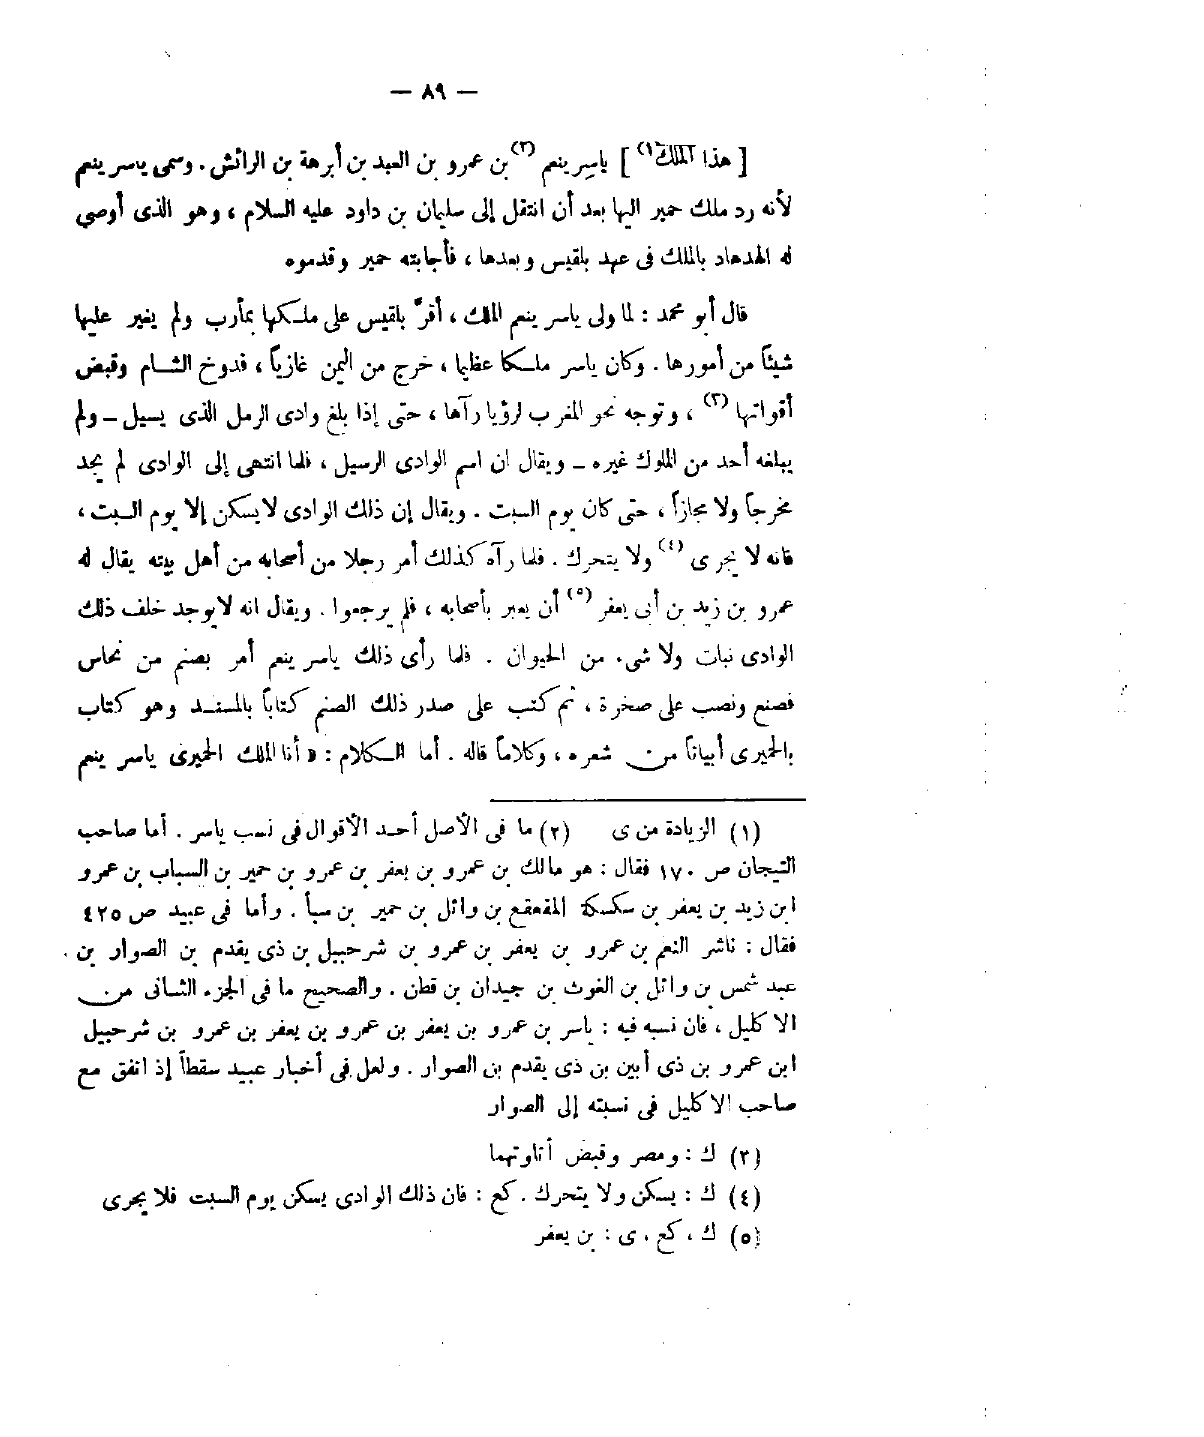 — ٨٩ —
[ هذا الملك(١) ] ياسِر ينعم (٢) بن عمرو بن العبد بن أبرهة بن الرائش . وسمى ياسر ينعم
لأنه رد ملك حمير اليها بعد أن انتقل إلى سليمان بن داود عليه السلام ، وهو الذى أوصي
له الهدهاد بالملك فى عهد بلقيس وبعدها ، فأجابته حمير وقدموه
قال أبو محمد : لما ولى ياسر ينعم الملك ، أقرّ بلقيس على ملكها بمأرب ولم يغير عليها
شيئاً من أمورها . وكان ياسر ملكا عظيما ، خرج من اليمن غازياً ، فدوخ الشام وقبض
أقواتها (٣) ، وتوجه نحو المغرب لرؤيا رآها ، حتى إذا بلغ وادى الرمل الذى يسيل – ولم
يبلغه أحد من الملوك غيره – ويقال ان اسم الوادى الرسيل ، فلما انتهى إلى الوادى لم يجد
مخرجاً ولا مجازاً ، حتى كان يوم السبت . ويقال إن ذلك الوادى لا يسكن إلا يوم السبت ،
فانه لا يجرى (٤) ولا يتحرك . فلما رآه كذلك أمر رجلا من أصحابه من أهل بيته يقال له
عمرو بن زيد بن أبى يعفر (٥) أن يعبر بأصحابه ، فلم يرجعوا . ويقال انه لا يوجد خلف ذلك
الوادى نبات ولا شىء من الحيوان . فلما رأى ذلك ياسر ينعم أمر بصنم من نحاس
فصنع ونصب على صخرة ، ثم كتب على صدر ذلك الصنم كتاباً بالمسند وهو كتاب
بالحميرى أبياتاً من شعره ، وكلاماً قاله . أما الكلام : « أنا الملك الحميرى ياسر ينعم
(١) الزيادة من ى (٢) ما فى الأصل أحد الأقوال فى نسب ياسر . أما صاحب
التيجان ص ١٧٠ فقال : هو مالك بن عمرو بن يعفر بن عمرو بن حمير بن السباب بن عمرو
ابن زيد بن يعفر بن سكسكة المقعقع بن وائل بن حمير بن سبأ . وأما فى عبيد ص ٤٢٥
فقال : ناشر النعم بن عمرو بن يعفر بن عمرو بن شرحبيل بن ذى يقدم بن الصوار بن
عبد شمس بن وائل بن الغوث بن جيدان بن قطن . والصحيح ما فى الجزء الثانى من
الاكليل ، فان نسبه فيه : ياسر بن عمرو بن يعفر بن عمرو بن يعفر بن عمرو بن شرحبيل
ابن عمرو بن ذى أبين بن ذى يقدم بن الصوار . ولعل فى أخبار عبيد سقطاً إذ اتفق مع
صاحب الاكليل فى نسبته إلى الصوار
(٣) ك : ومصر وقبض أتاوتهما
(٤) ك : يسكن ولا يتحرك . كع : فان ذلك الوادى يسكن يوم السبت فلا يجرى
(٥) ك ، كع ، ى : بن يعفر